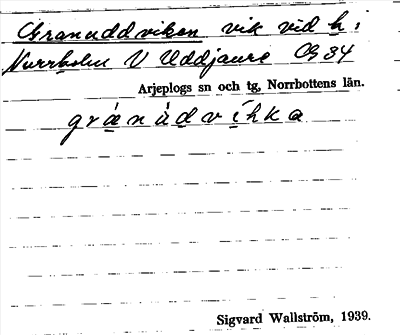 Granuddviken vik vid h:
Norrholm V Uddjaure Cg 34
Arjeplogs sn och tg, Norrbottens län.
gránùdvíhka
Sigvard Wallström, 1939.